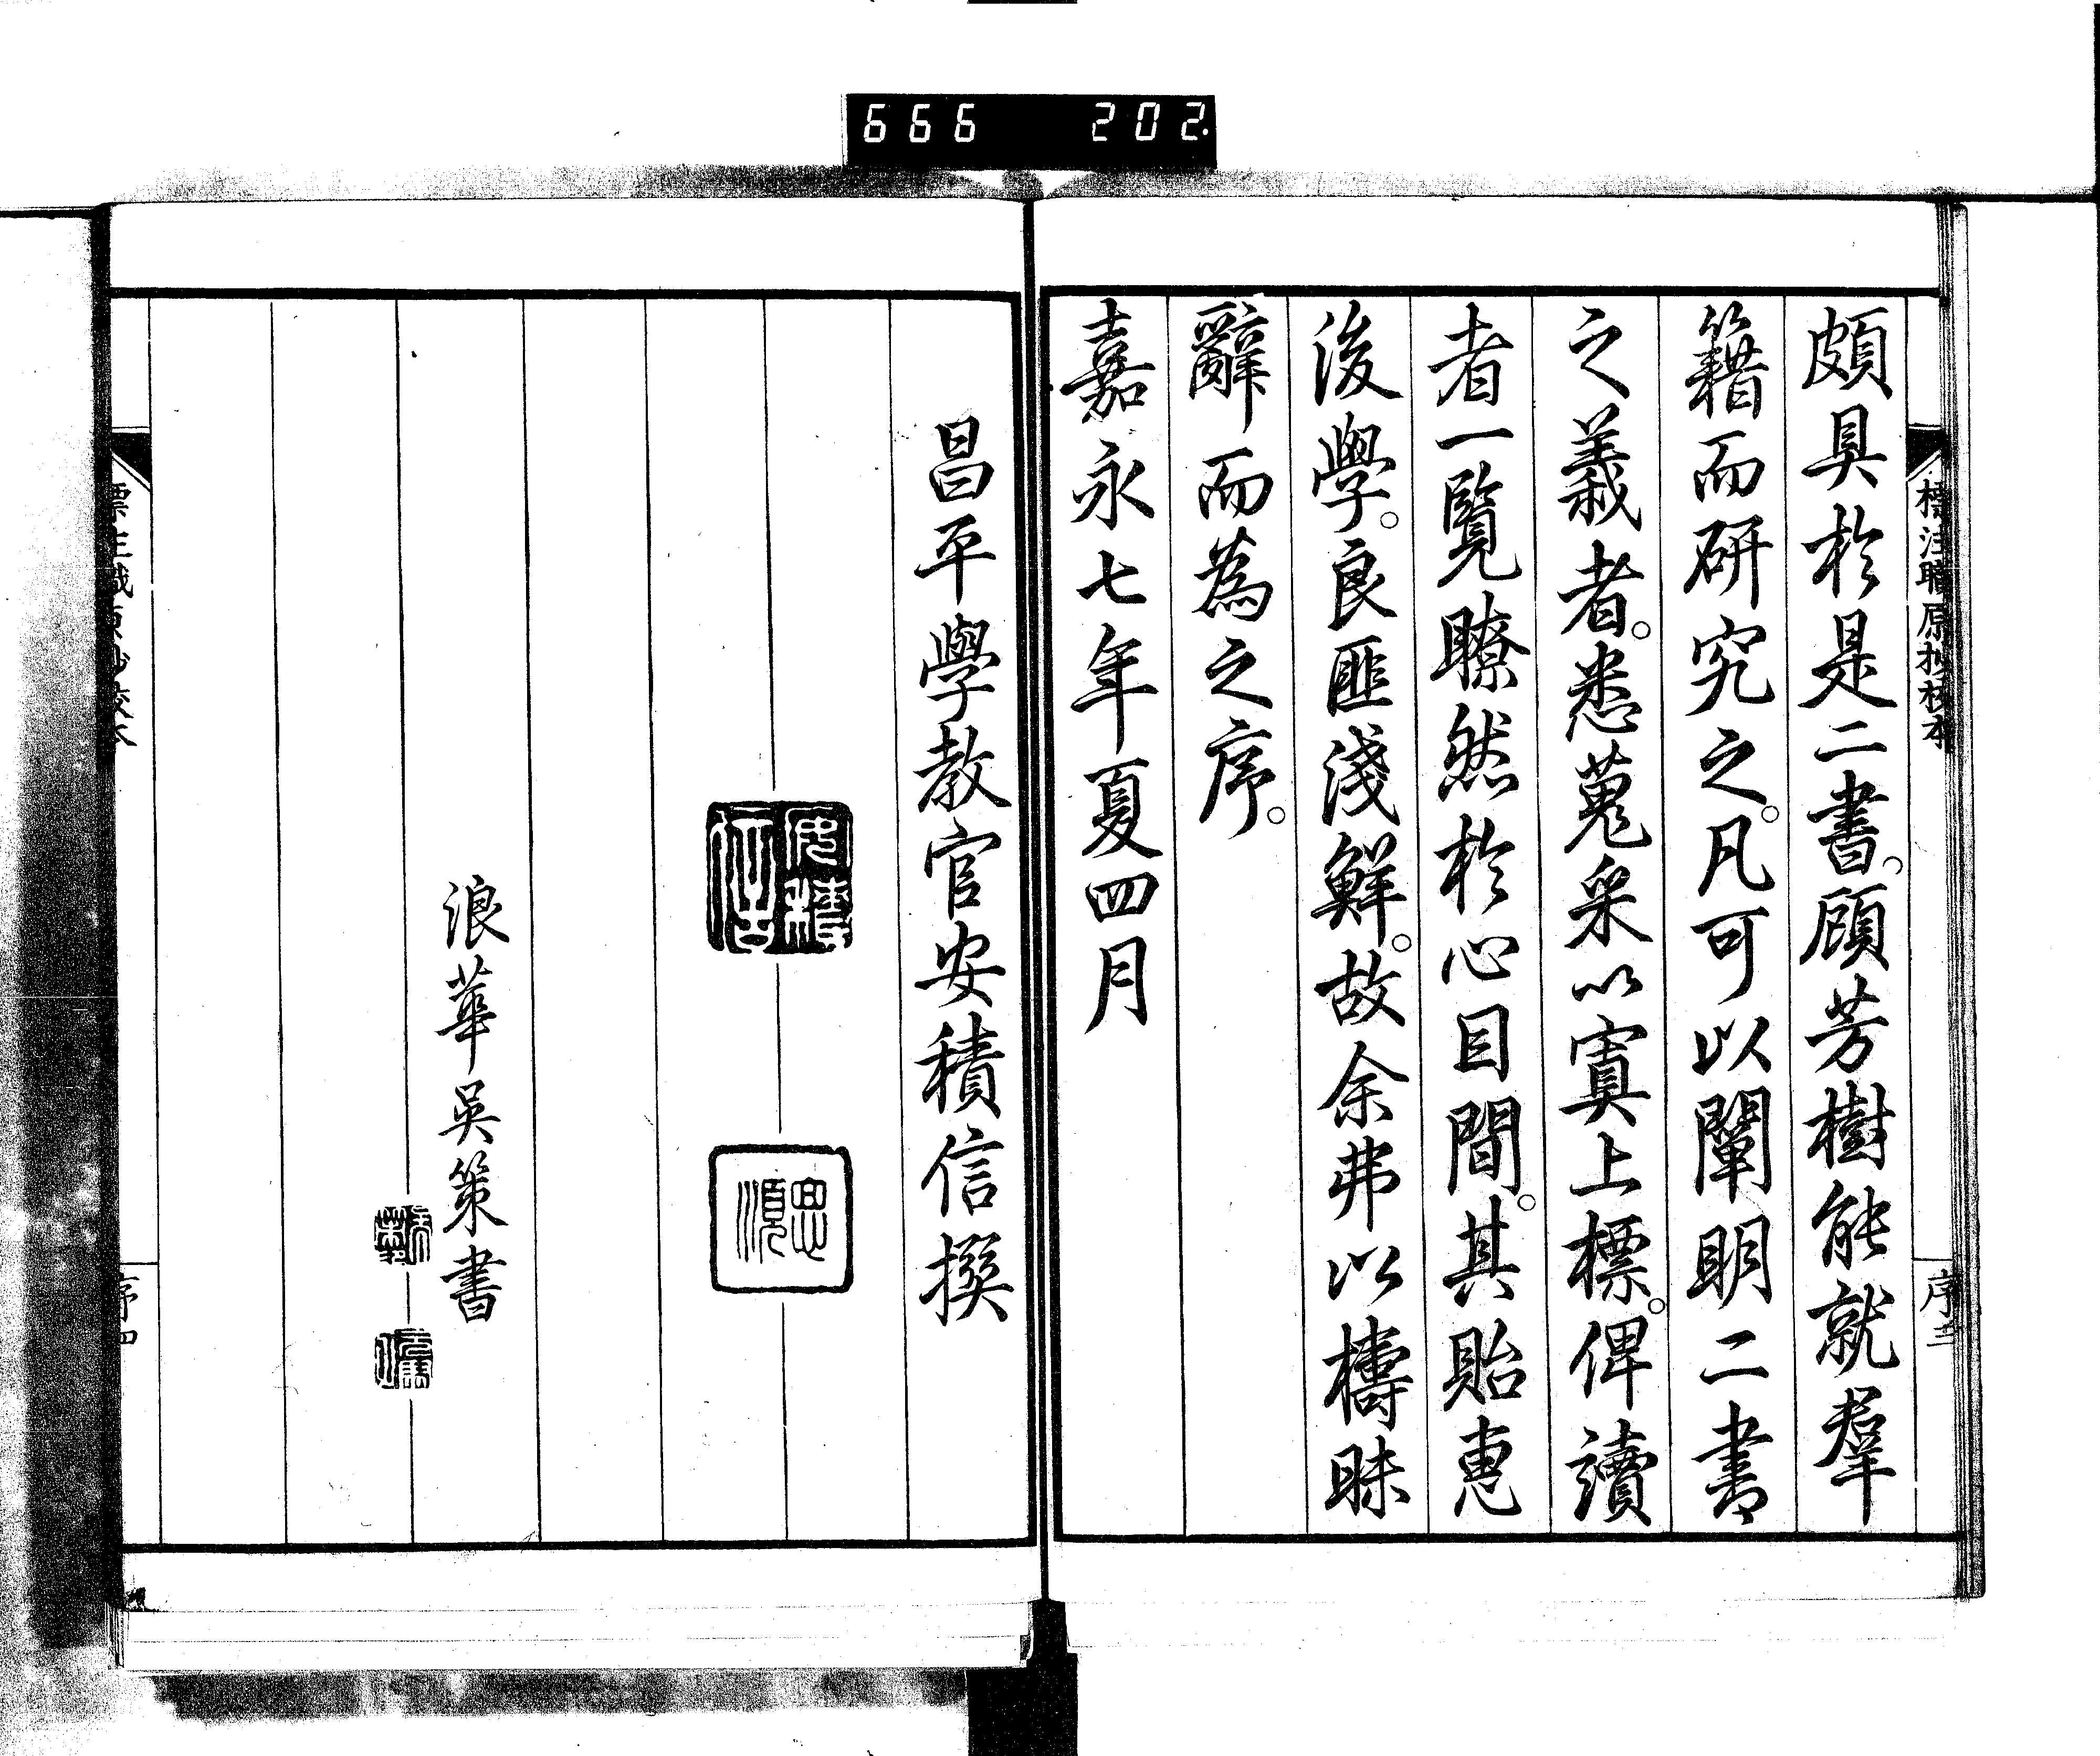 666 202
標注職原抄校本
序三
頗具於是二書。顧芳樹能就羣
籍而研究之。凡可以闡明二書
之義者。悉蒐采以寘上標。俾讀
者一覽瞭然於心目間。其貽惠
後學。良匪淺鮮。故余弗以檮昧
辭而為之序。
嘉永七年夏四月
昌平學教官安積信撰
安積信
思順
浪華吳策書
序四